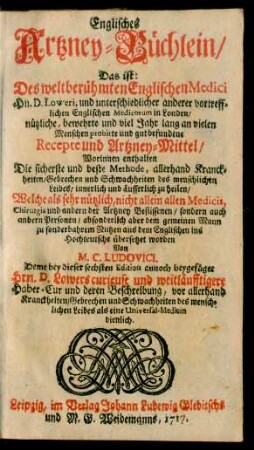 Englisches
Artzney-Büchlein/
Das ist:
Des weltberühmten Englischen Medici
Hn. D. Loweri, und unterschiedlicher anderer vortreff-
lichen Englischen Medicorum in Londen,
nützliche, bewehrte und viel Jahr lang an vielen
Menschen probirte und gut befundene
Recepte und Artzney-Mittel/
Worinnen enthalten
Die sicherste und beste Methode, allerhand Kranck-
heiten/Gebrechen und Schwachheiten des menschlichen
Leibes/ innerlich und äusserlich zu heilen/
Welche als sehr nützlich, nicht allein allen Medicis,
Chirurgis und andern der Artzney Beflissenen/ sondern auch
andern Personen/ absonderlich aber dem gemeinen Mann
zu sonderbahrem Nutzen aus dem Englischen ins
Hochteutsche übersetzet worden
Von
M. C. LUDOVICI.
Deme bey dieser sechsten Edition annoch beygefüget
Hrn. D. Lowers curieuse und weitläufftigere
Haber-Cur und deren Beschreibung, vor allerhand
Kranckheiten/Gebrechen und Schwachheiten des mensch-
lichen Leibes als eine Universal-Medicin
dienlich.
Leipzig, im Verlag Johann Ludewig Gleditschs
und M. G. Weidmanns, 1717.